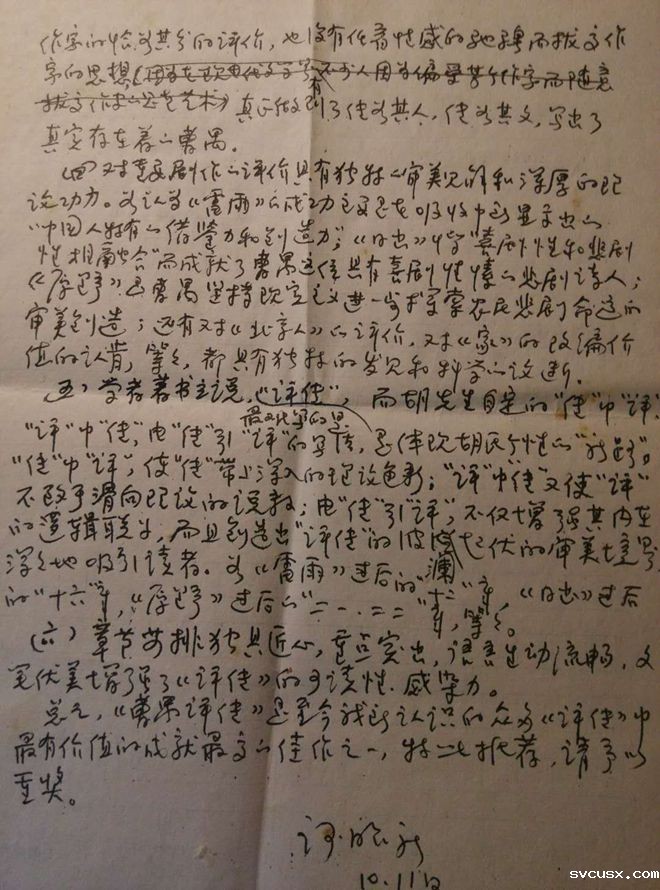 作家的恰如其分的评价，也没有任着性感的驰骋而拔高作
家的思想
真正做到了传如其人，传如其文，写出了
真实存在着的曹禺。
(四)对其剧作的评价具有独特的审美见解和深厚的理
论功力。如认为《雷雨》的成功主要是在吸收中显示出的
“中国人特有的借鉴力和创造力”；《日出》“喜剧性和悲剧
性相融合”而成就了曹禺这位具有喜剧性情的悲剧诗人；
《原野》是曹禺坚持现实主义进一步探索农民悲剧命运的
审美创造；还有对《北京人》的评价，对《家》的改编价
值的认肯，等等，都具有独特的发见和科学的论断。
(五)学者著书立说，《评传》，而胡先生自定的“传”中“评”
“评”中“传”，由“传”引“评”的写法，是体现胡氏个性的“新路”。
“传”中“评”，使“传”带上深入的理论色彩；“评”中“传”又使“评”
不致于滑向理论的说教；由“传”引“评”，不仅增强其内在
的逻辑联系，而且创造出“评传”的波澜起伏的审美境界
深深地吸引读者。如《雷雨》过后的“十二”章，《日出》过后
的“十六”章，《原野》过后的章，等等。
(六)章节安排独具匠心，重点突出，语言生动流畅，文
笔优美增强了《评传》的可读性、感染力。
总之，《曹禺评传》是至今我所认识的众多《评传》中
最有价值的成就最高的佳作之一，特此推荐，请予以
重奖。
10.11日
svcusx.com